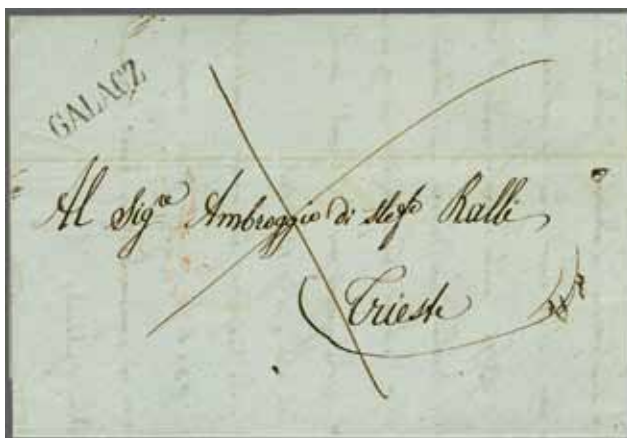 GALACZ
Al Sig.re Ambroggio di Stef.o Ralli
Trieste